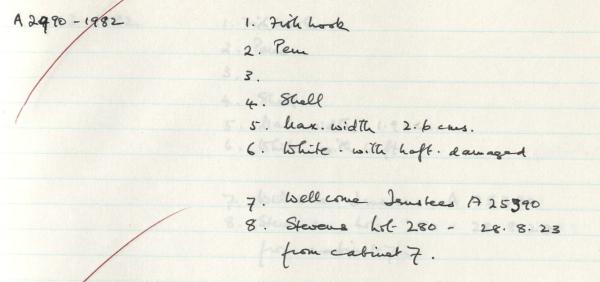 A 2490-1982 1. Fish hook
2. Peru
3.
4. Shell
5. Max. width 2.6 cms.
6. White. with haft. damaged
7. Wellcome Trustees A 25390
8. Stevens Lot 280 - 28.8.23
from cabinet 7.